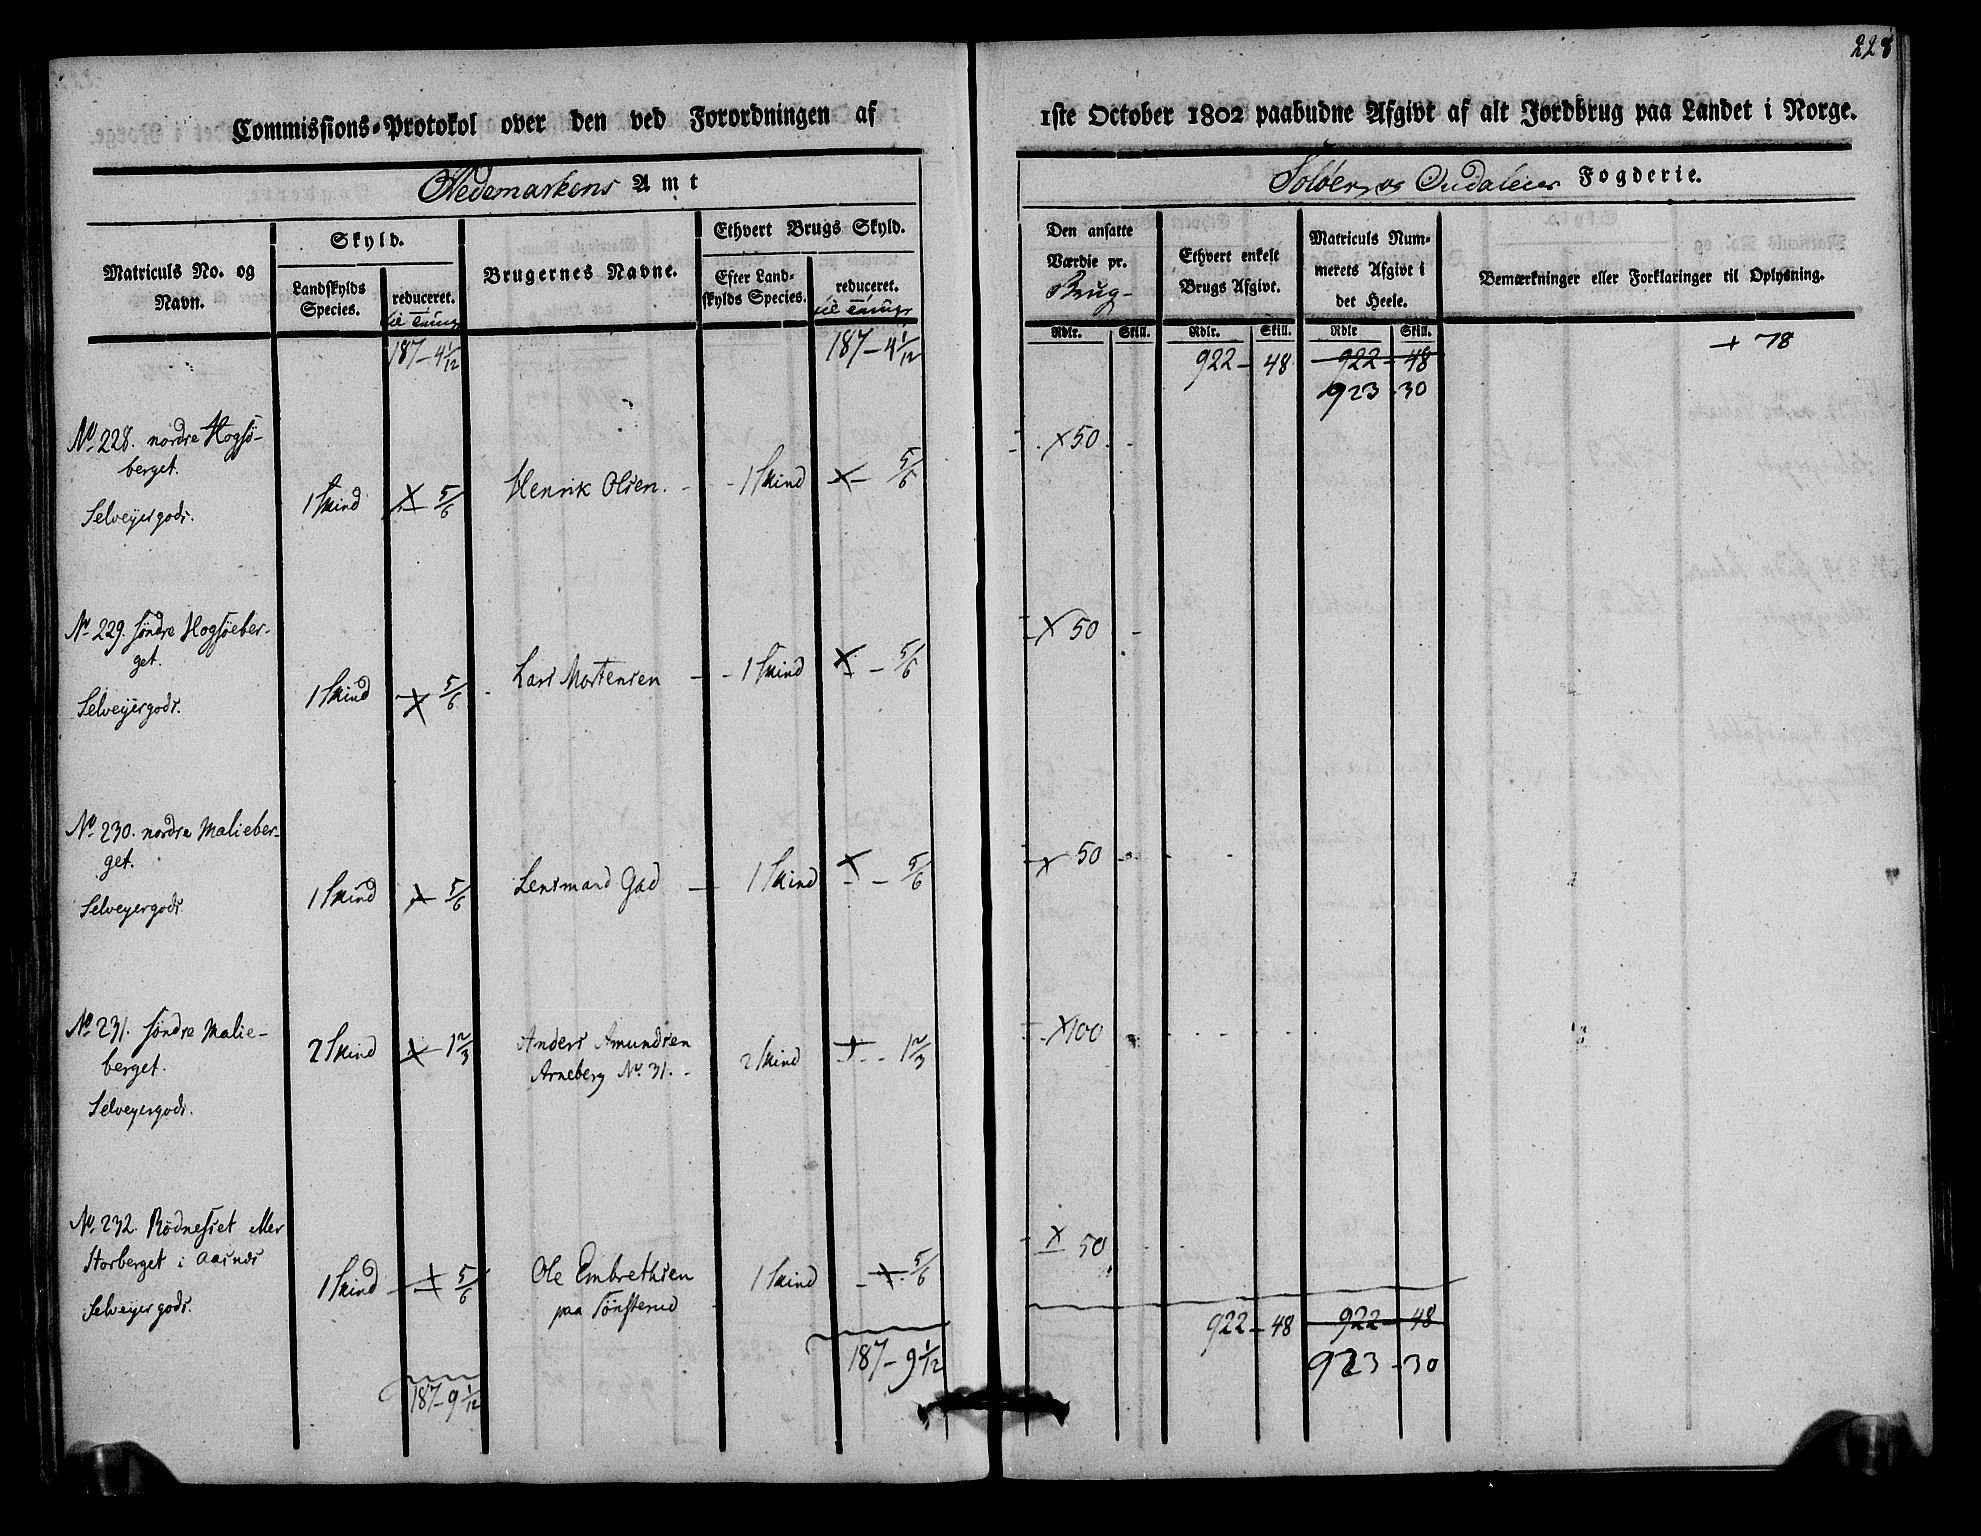 228
Commissions-Protokol over den ved Forordningen af 1ste October 1802 paabudne Afgivt af alt Jordbrug paa Landet i Norge.
Hedemarkens Amt
Soløer og Oudalens Fogderie.
Matriculs No. og Navn.
Skyld.
Landskylds Species.
reduceret.
til Tunge
Brugernes Navne.
Ethvert Brugs Skyld.
Efter Landskylds Species.
reduceret.
til Tunge
Den ansatte Værdie pr.
Brug-
Rdlr. Skill.
Ethvert enkelt Brugs Afgivt.
Rdlr. Skill.
Matriculs Nummerets Afgivt i det Heele.
Rdlr Skill.
Bemærkninger eller Forklaringer til Oplysning.
187-4 1/12 187-4 1/12 922-48 922-48 + 78
923-30
No 228. nordre Hogsö-
berget.
Selveyergods. 1 Skind x 5/6 Henrik Olsen. 1 Skind x 5/6 x 50
No 229. søndre Hogsøeber-
get.
Selveyergods. 1 Skind x 5/6 Lars Mortensen 1 Skind x 5/6 x 50
No 230. nordre Malieber-
get.
Selveyergods 1 Skind x 5/6 Lensmand Gad 1 Skind x 5/6 x 50
No 231. søndre Malie-
berget.
Selveyergods. 2 Skind x 1 2/3 Anders Amundsen 2 Skind x 1 2/3 x 100
Arneberg No. 31.
No 232. Rödnesset eller
Storberget i Aasnes
Selveyergods. 1 Skind x 5/6 Ole Embrethsen 1 Skind x 5/6 x 50
paa Tønsterud
187-9 1/12 187-9 1/12 922-48 922-48
923-30